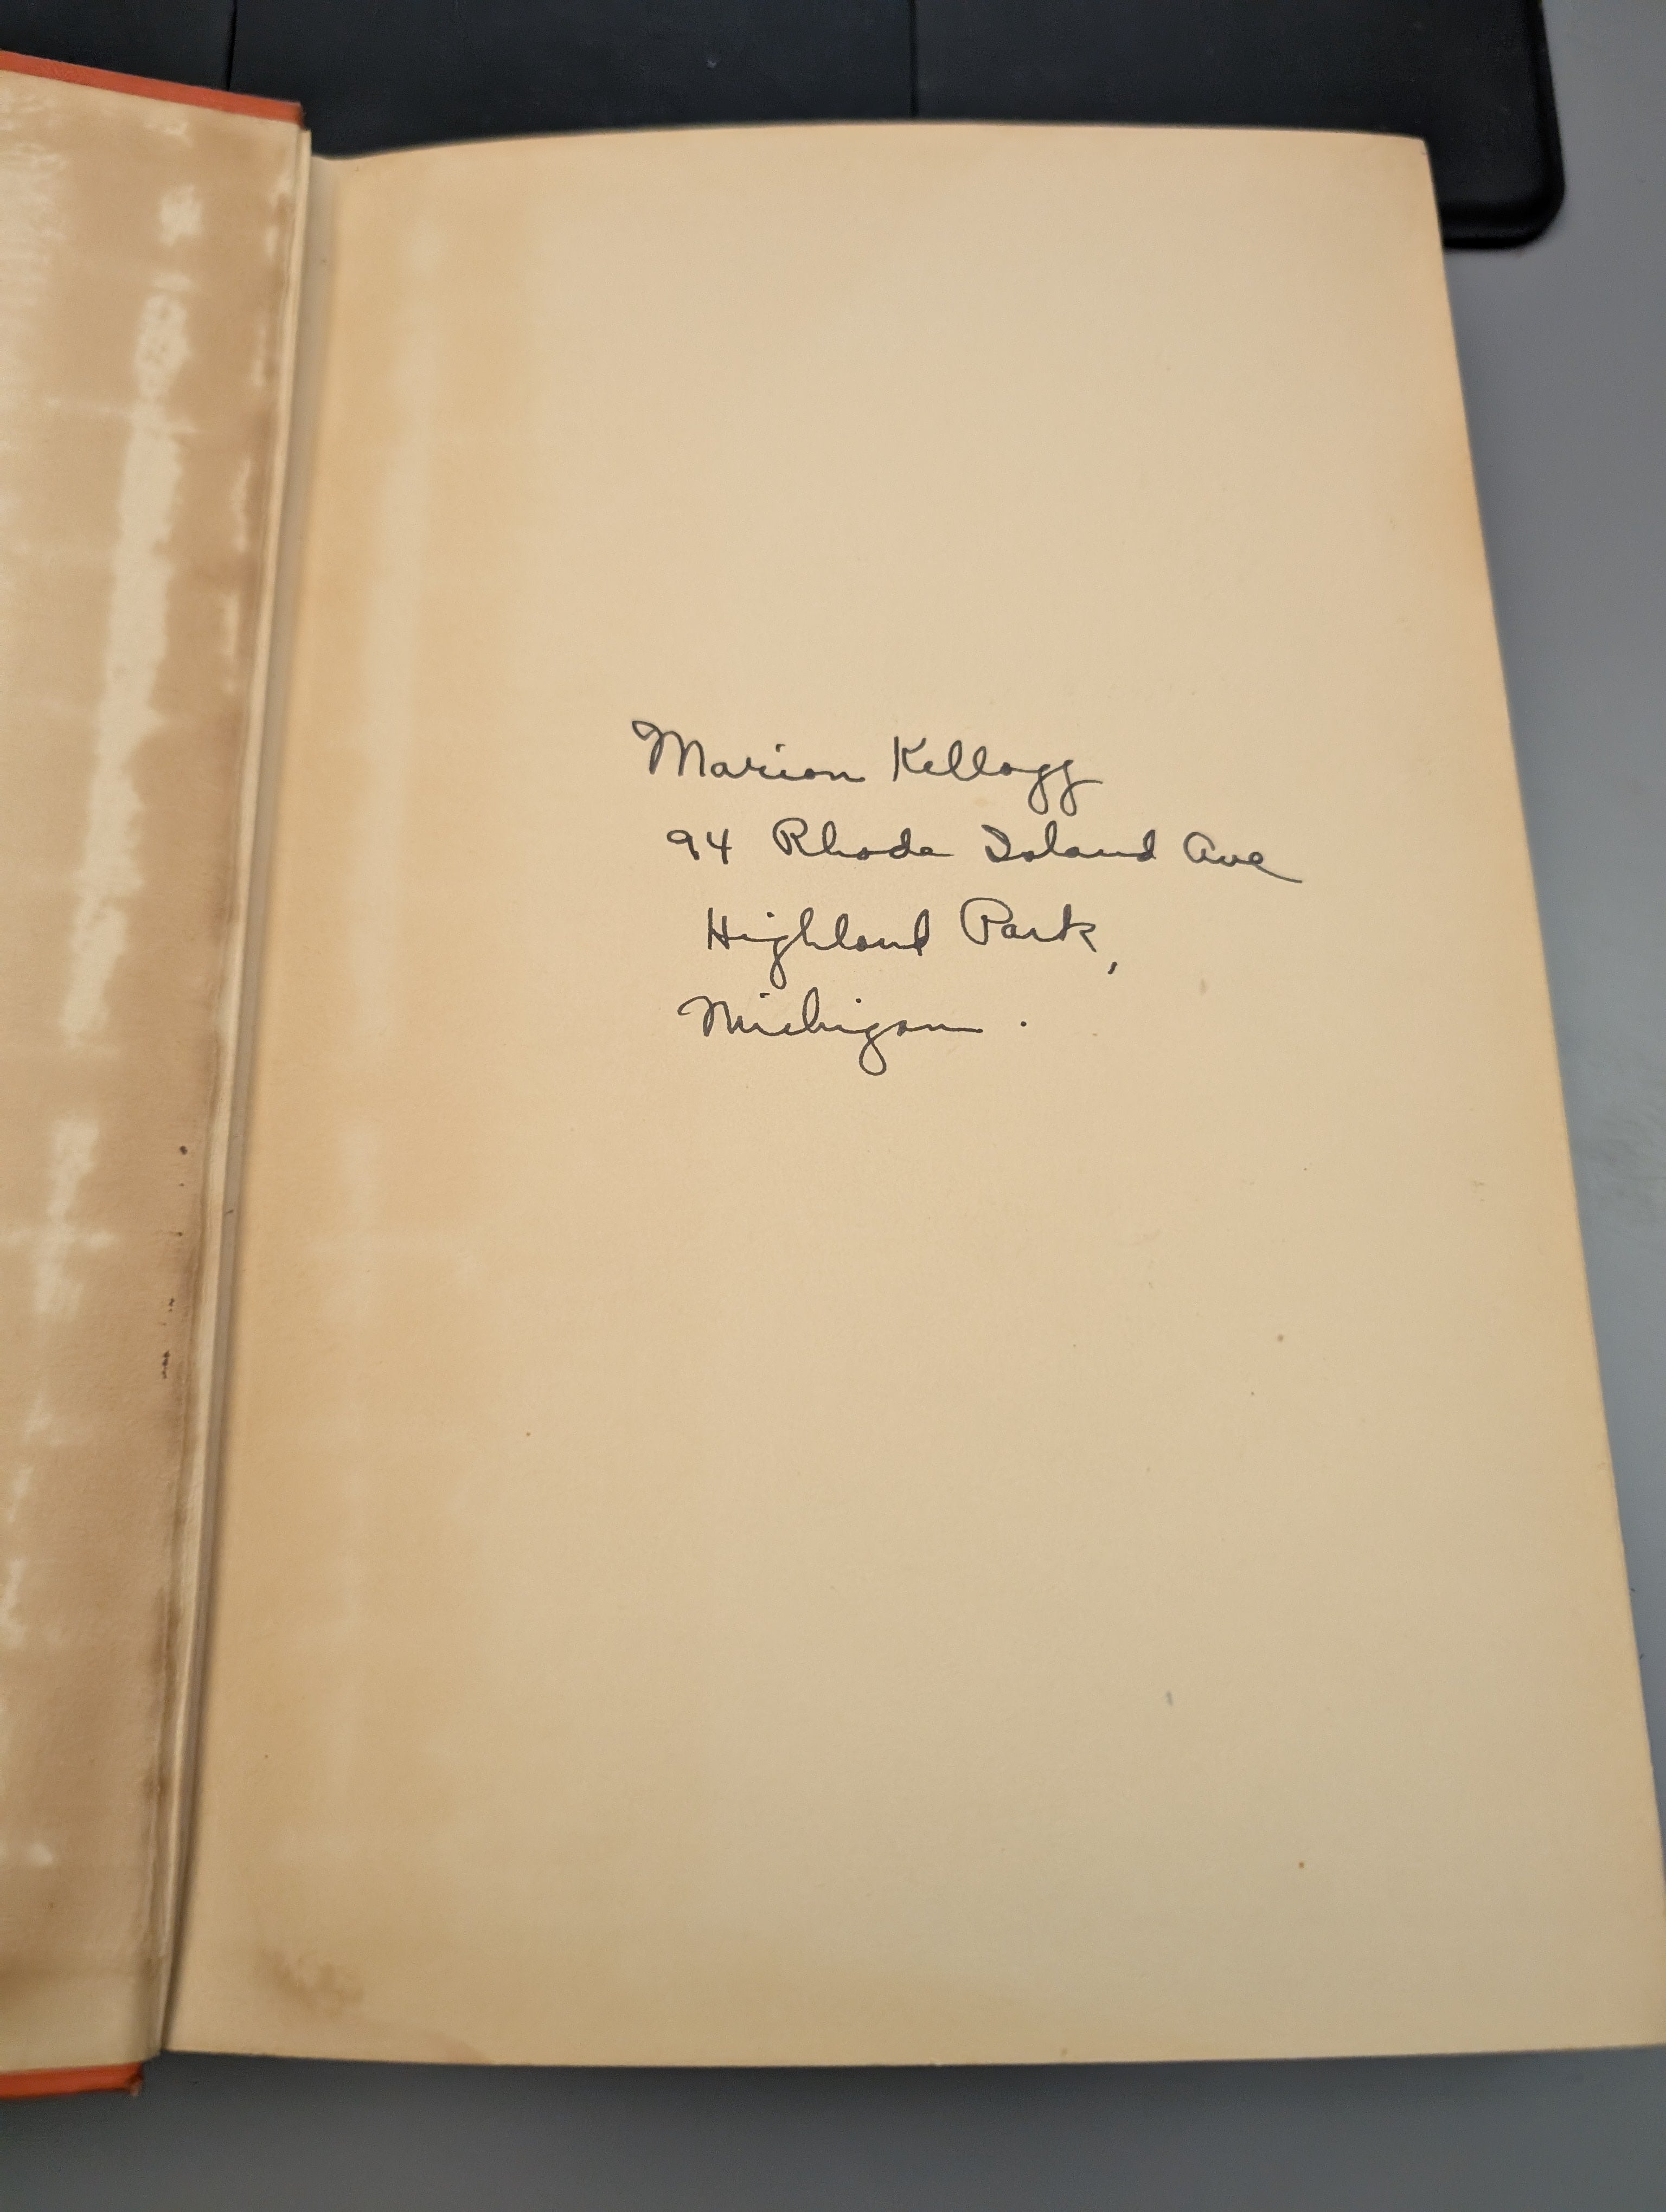 Marion Kellogg
94 Rhode Island Ave
Highland Park,
Michigan.